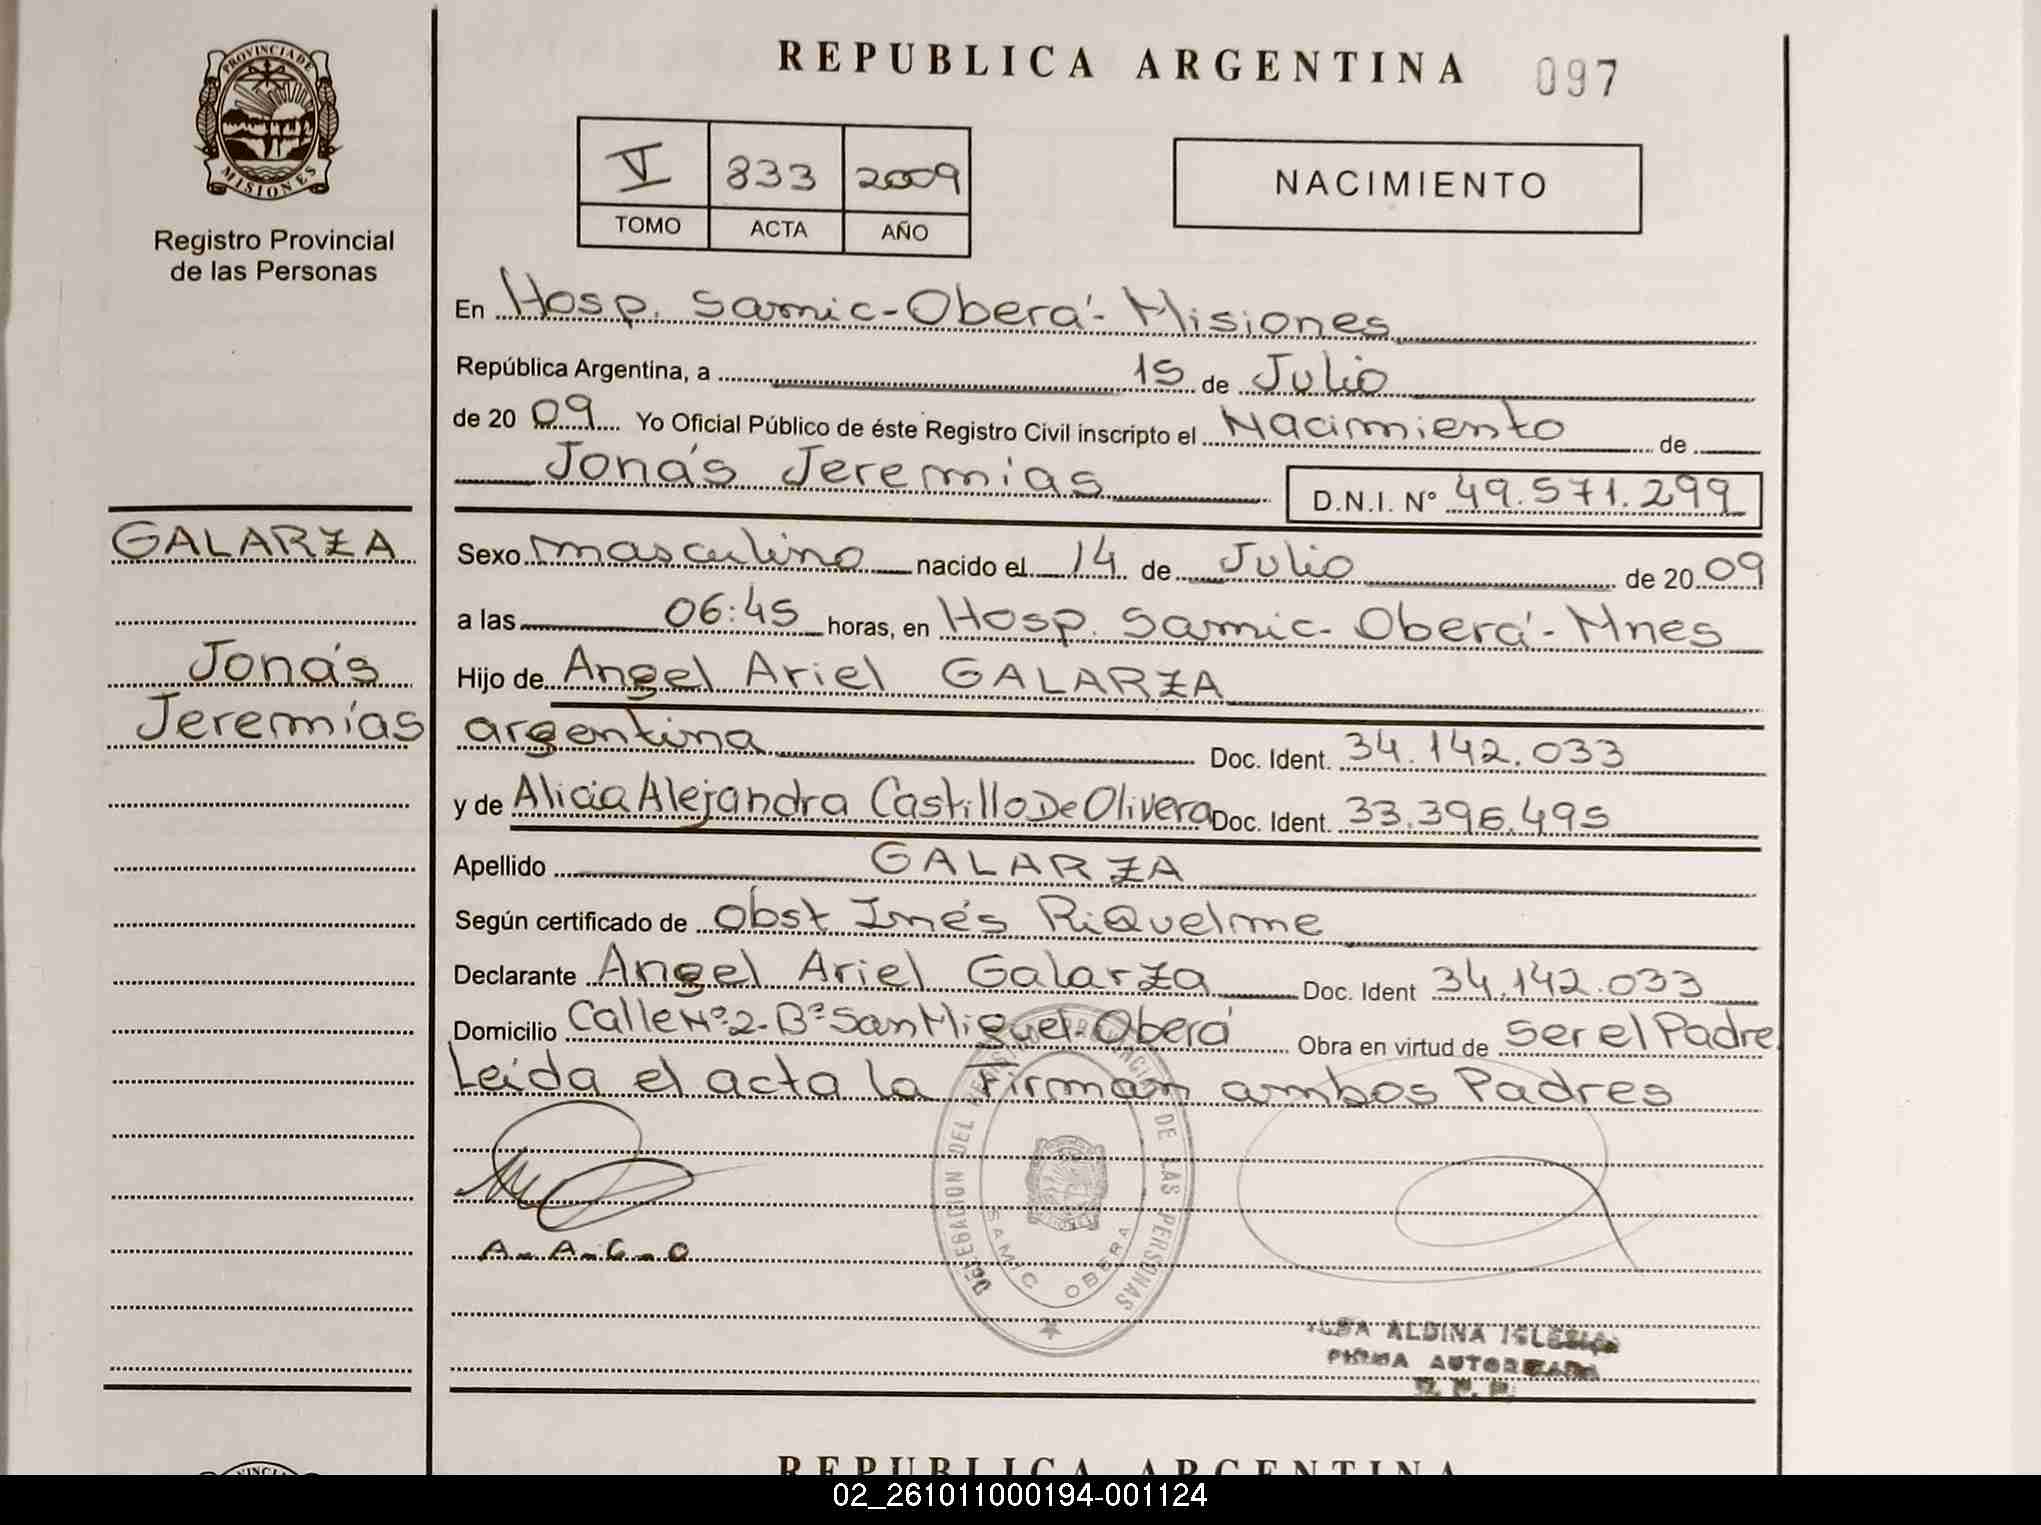 PROVINCIA DE
MISIONES
Registro Provincial
de las Personas
REPUBLICA ARGENTINA 097
V 833 2009
TOMO ACTA AÑO
NACIMIENTO
En Hosp. Samic-Oberá-Misiones
República Argentina, a 15 de Julio
de 2009 Yo Oficial Público de éste Registro Civil inscripto el Nacimiento de
Jonás Jeremías D.N.I. Nº 49.571.299
GALARZA
Jonás
Jeremías
Sexo masculino nacido el 14 de Julio de 2009
a las 06:45 horas, en Hosp. Samic-Oberá-Mnes
Hijo de Angel Ariel GALARZA
argentina Doc. Ident. 34.142.033
y de Alicia Alejandra Castillo De Olivera Doc. Ident. 33.396.495
Apellido GALARZA
Según certificado de Obst Inés Riquelme
Declarante Angel Ariel Galarza Doc. Ident 34.142.033
Domicilio Calle Nº 2-Bº San Miguel-Oberá Obra en virtud de ser el Padre
Leída el acta la Firman ambos Padres
A-A-C-O
DELEGACION DEL REGISTRO PROVINCIAL DE LAS PERSONAS
SAMIC OBERA
ALDINA IGLESIAS
FIRMA AUTORIZADA
R. P. P.
REPUBLICA ARGENTINA
02_261011000194-001124